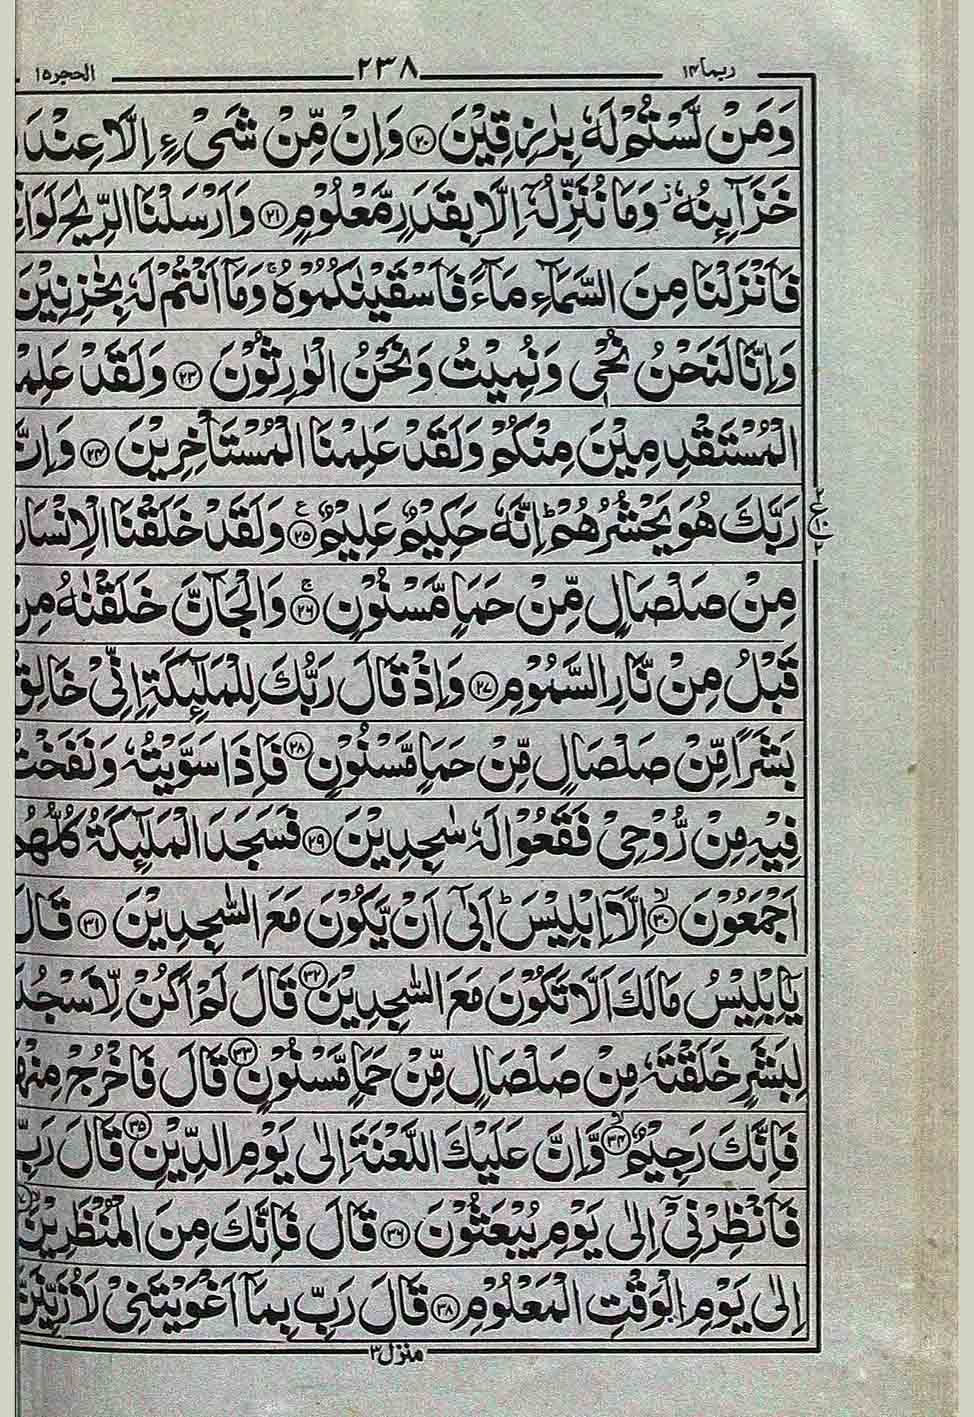 ربما ١٤ ٢٣٨ الحجر ١٥
وَمَنْ لَّسْتُمْ لَهٗ بِرٰزِقِيْنَ ﴿٢٠﴾ وَاِنْ مِّنْ شَيْءٍ اِلَّا عِنْدَ
خَزَآئِنُهٗ ز وَمَا نُنَزِّلُهٗٓ اِلَّا بِقَدَرٍ مَّعْلُوْمٍ ﴿٢١﴾ وَاَرْسَلْنَا الرِّيٰحَ لَوَا
فَاَنْزَلْنَا مِنَ السَّمَآءِ مَآءً فَاَسْقَيْنٰكُمُوْهُ ۚ وَمَآ اَنْتُمْ لَهٗ بِخٰزِنِيْنَ
وَاِنَّا لَنَحْنُ نُحْيٖ وَنُمِيْتُ وَنَحْنُ الْوٰرِثُوْنَ ﴿٢٣﴾ وَلَقَدْ عَلِمْ
الْمُسْتَقْدِمِيْنَ مِنْكُمْ وَلَقَدْ عَلِمْنَا الْمُسْتَاْخِرِيْنَ ﴿٢٤﴾ وَاِنَّ
رَبَّكَ هُوَ يَحْشُرُهُمْ ؕ اِنَّهٗ حَكِيْمٌ عَلِيْمٌ ﴿٢٥﴾ ع وَلَقَدْ خَلَقْنَا الْاِنْسَانَ
مِنْ صَلْصَالٍ مِّنْ حَمَاٍ مَّسْنُوْنٍ ﴿٢٦﴾ ۚ وَالْجَآنَّ خَلَقْنٰهُ مِنْ
قَبْلُ مِنْ نَّارِ السَّمُوْمِ ﴿٢٧﴾ وَاِذْ قَالَ رَبُّكَ لِلْمَلٰٓئِكَةِ اِنِّيْ خَالِقٌ
بَشَرًا مِّنْ صَلْصَالٍ مِّنْ حَمَاٍ مَّسْنُوْنٍ ﴿٢٨﴾ فَاِذَا سَوَّيْتُهٗ وَنَفَخْتُ
فِيْهِ مِنْ رُّوْحِيْ فَقَعُوْا لَهٗ سٰجِدِيْنَ ﴿٢٩﴾ فَسَجَدَ الْمَلٰٓئِكَةُ كُلُّهُمْ
اَجْمَعُوْنَ ﴿٣٠﴾ ۙ اِلَّآ اِبْلِيْسَ ؕ اَبٰٓى اَنْ يَّكُوْنَ مَعَ السّٰجِدِيْنَ ﴿٣١﴾ قَالَ
يٰٓاِبْلِيْسُ مَا لَكَ اَلَّا تَكُوْنَ مَعَ السّٰجِدِيْنَ ﴿٣٢﴾ قَالَ لَمْ اَكُنْ لِّاَسْجُدَ
لِبَشَرٍ خَلَقْتَهٗ مِنْ صَلْصَالٍ مِّنْ حَمَاٍ مَّسْنُوْنٍ ﴿٣٣﴾ قَالَ فَاخْرُجْ مِنْهَا
فَاِنَّكَ رَجِيْمٌ ﴿٣٤﴾ ۙ وَّاِنَّ عَلَيْكَ اللَّعْنَةَ اِلٰى يَوْمِ الدِّيْنِ ﴿٣٥﴾ قَالَ رَبِّ
فَاَنْظِرْنِيْٓ اِلٰى يَوْمِ يُبْعَثُوْنَ ﴿٣٦﴾ قَالَ فَاِنَّكَ مِنَ الْمُنْظَرِيْنَ
اِلٰى يَوْمِ الْوَقْتِ الْمَعْلُوْمِ ﴿٣٨﴾ قَالَ رَبِّ بِمَآ اَغْوَيْتَنِيْ لَاُزَيِّنَنَّ
منزل ٣